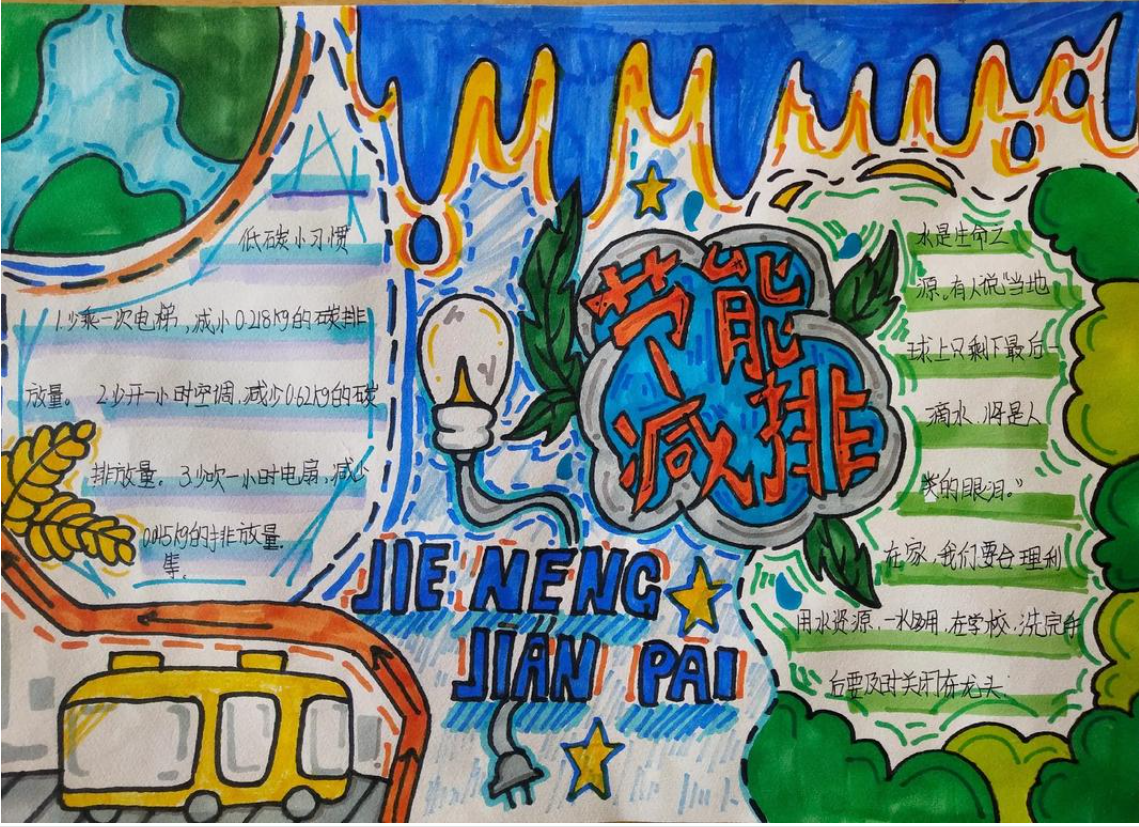 低碳小习惯
1.少乘一次电梯,减小0.218kg的碳排
放量。 2.少开一小时空调,减少0.62kg的碳
排放量。 3.少吹一小时电扇,减少
0.045kg的排放量.
等。
节能
减排
JIE NENG
JIĀN PĀI
水是生命之
源。有人说“当地
球上只剩下最后一
滴水,将是人
类的眼泪。”
在家,我们要合理利
用水资源,一水多用,在学校,洗完手
后要及时关闭水龙头.